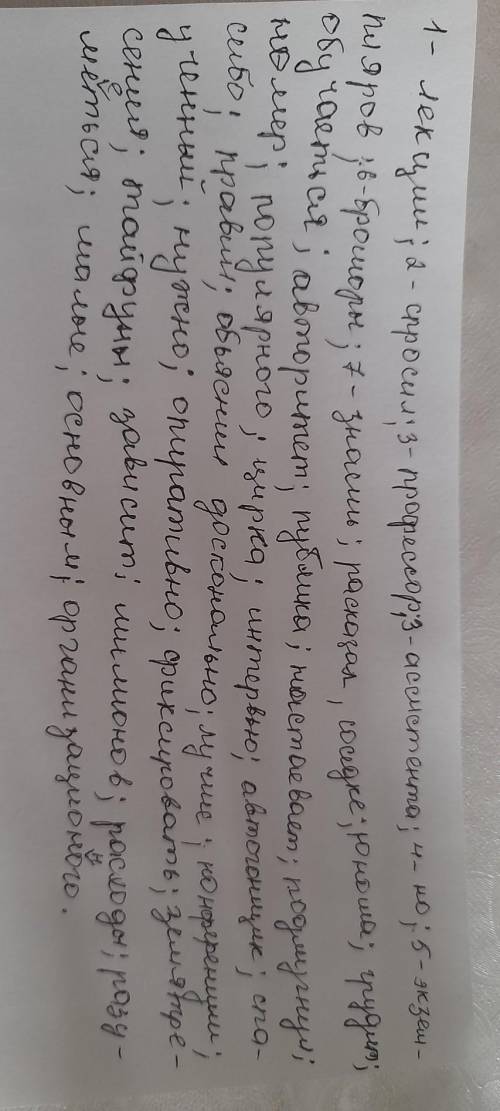 1- лекции; 2- спросил; 3- профессор; 3- ассистента; 4- но; 5- экзем-
пляров; в- брошюры; 7- знаешь; расказал, соседке; юноша; грудит;
обучаеться; авторитет; публика; настаевает; подмигнул;
номер; популярного; цирка; интервью; автогонщик; спа-
сибо; правил; обьяснил досконально; лучше; конференции;
ученный; нужно; опиративно; фиксировать; землятре-
сения; тайфуны; зависит; милионов; расходы; разу-
меться; малые; основным; организационого.